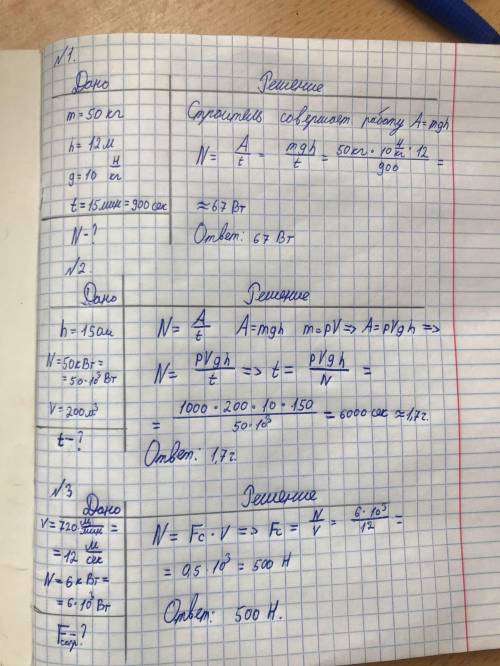 №1.
Дано
Решение
m = 50 кг
h = 12 м
g = 10 Н/кг
t = 15 мин = 900 сек
N - ?
Строитель совершает работу A = mgh
N = A/t = mgh/t = 50 кг · 10 Н/кг · 12/900 =
≈ 67 Вт
Ответ: 67 Вт
№2
Дано
Решение
h = 150 м
N = 50 кВт =
= 50 · 10³ Вт
V = 200 м³
t - ?
N = A/t A = mgh m = ρV => A = ρVgh =>
N = ρVgh/t => t = ρVgh/N =
= 1000 · 200 · 10 · 150/50 · 10³ = 6000 сек ≈ 1,7 г.
Ответ: 1,7 г.
№3
Дано
Решение
V = 720 м/мин =
= 12 м/сек
N = 6 кВт =
= 6 · 10³ Вт
Fсопр. - ?
N = Fc · V => Fc = N/V = 6 · 10³/12 =
= 0,5 · 10³ = 500 Н
Ответ: 500 Н.